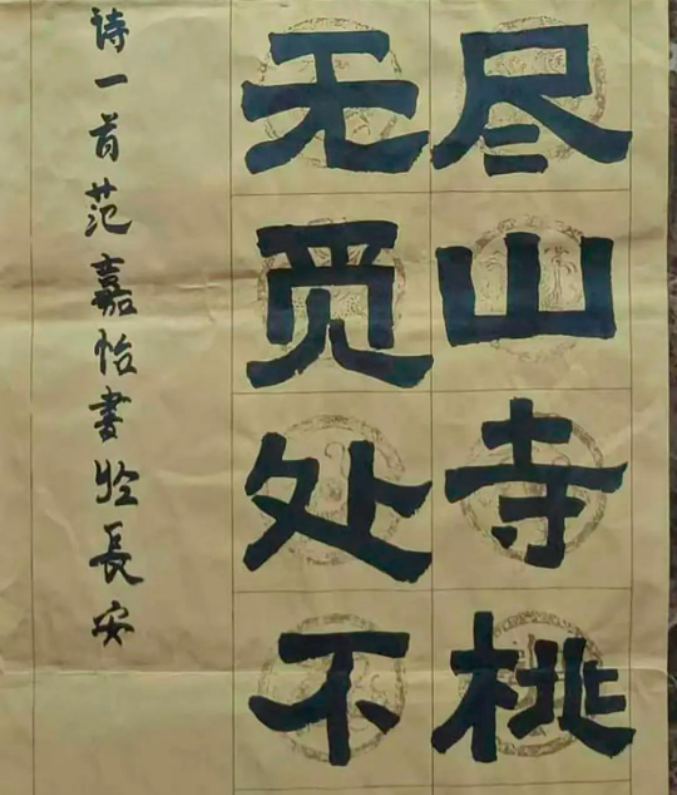 尽山寺桃
无觅处不
诗一首范嘉怡书于長安